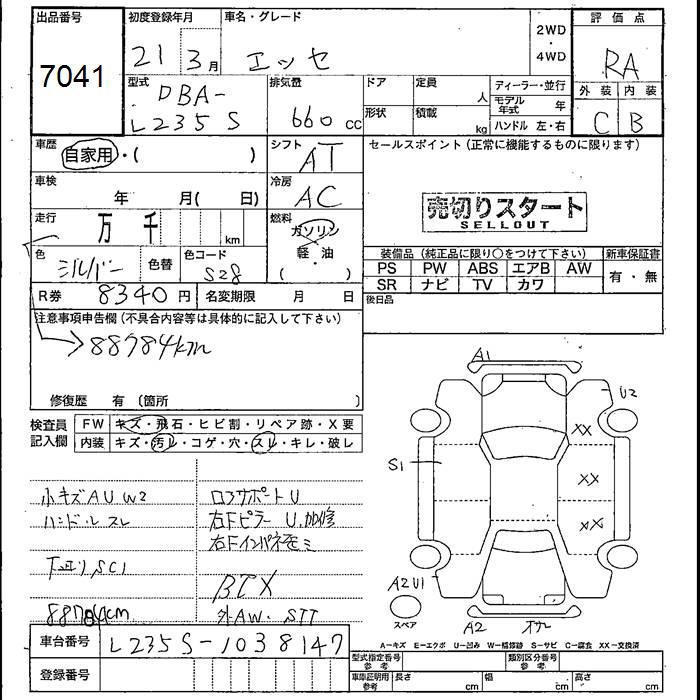 出品番号
7041
初度登録年月
21 3月
車名・グレード
エッセ
2WD
・
4WD
評価点
RA
外装 内装
C B
型式
DBA-
L235S
排気量
660 cc
ドア
形状
定員 人
積載 kg
ディーラー・並行
モデル年式 年
ハンドル 左・右
車歴
自家用・( )
シフト
AT
車検
年 月( 日)
冷房
AC
走行
万 千 km
燃料
ガソリン
軽・油
( )
色
シルバー
色替
色コード
S28
R券 8340円 名変期限 月 日
セールスポイント (正常に機能するものに限ります)
売切りスタート
SELLOUT
装備品 (純正品に限り○をつけて下さい)
PS PW ABS エアB AW
SR ナビ TV カワ
新車保証書
有・無
後日品
注意事項申告欄 (不具合内容等は具体的に記入して下さい)
→88784km
修復歴 有 (箇所 )
検査員記入欄
FW キズ・飛石・ヒビ割・リペア跡・X要
内装 キズ・汚レ・コゲ・穴・スレ・キレ・破レ
小キズAUW2
ハンドルスレ
下廻りSC1
88784km
ロアサポートU
右FピラーU.加修
右Fインパネモミ
BTX
外AW. STT
A1
U2
XX
S1
XX
XX
A2U1
スペア
A2
A-キズ E-エクボ U-凹み W-補修跡 S-サビ C-腐食 XX-交換済
車台番号 L235S-1038147
登録番号
型式指定番号
参考
類別区分番号
参考
車庫証明用
参考
長さ cm
幅 cm
高さ cm